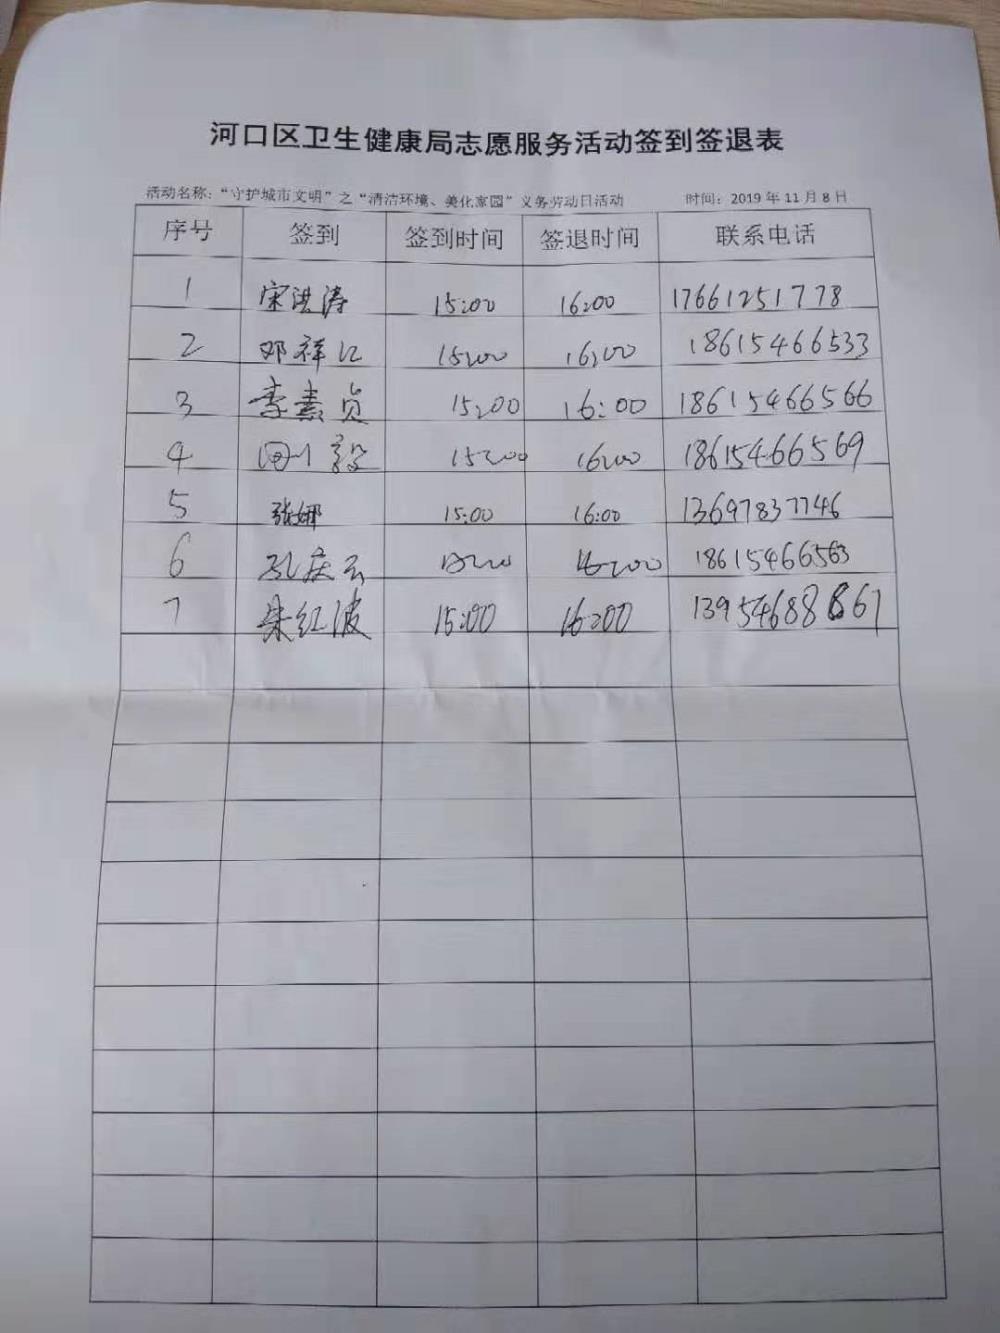 河口区卫生健康局志愿服务活动签到签退表
活动名称：“守护城市文明”之“清洁环境、美化家园”义务劳动日活动 时间：2019 年 11 月 8 日
序号 签到 签到时间 签退时间 联系电话
1 宋洪涛 15:00 16:00 17661251778
2 邓祥江 15:00 16:00 18615466533
3 李素贞 15:00 16:00 18615466566
4 毅 15:00 16:00 18615466569
5 张娜 15:00 16:00 13697837746
6 孔庆云 16:00 18615466563
7 朱红波 15:00 16:00 13954688861